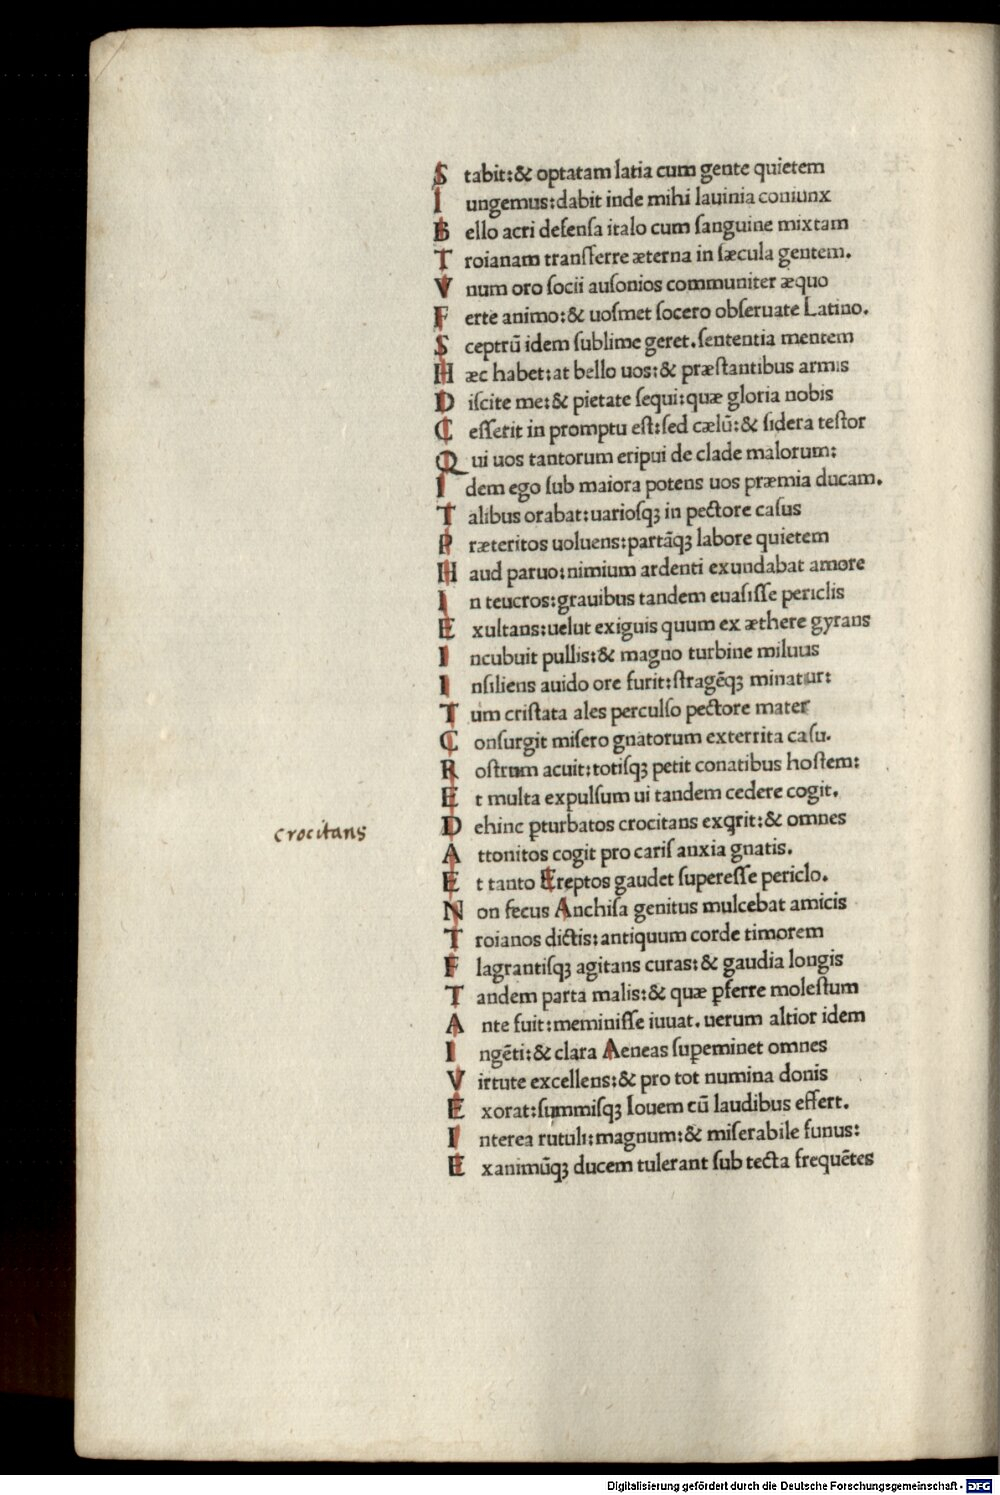 S tabit:& optatam latia cum gente quietem
I ungemus:dabit inde mihi lauinia coniunx
B ello acri defenſa italo cum ſanguine mixtam
T roianam tranſferre æterna in ſæcula gentem.
V num oro ſocii auſonios communiter æquo
F erte animo:& uoſmet ſocero obſeruate Latino.
S ceptrū idem ſublime geret.ſententia mentem
H æc habet:at bello uos:& præſtantibus armis
D iſcite me:& pietate ſequi:quæ gloria nobis
C eſſerit in promptu eſt:ſed cælū:& ſidera teſtor
Q ui uos tantorum eripui de clade malorum:
I dem ego ſub maiora potens uos præmia ducam.
T alibus orabat:uarioſqꝫ in pectore caſus
P ræteritos uoluens:partāqꝫ labore quietem
H aud paruo:nimium ardenti exundabat amore
I n teucros:grauibus tandem euaſiſſe periclis
E xultans:uelut exiguis quum ex æthere gyrans
I ncubuit pullis:& magno turbine miluus
I nſiliens auido ore furit:ſtragēqꝫ minatur:
T um criſtata ales perculſo pectore mater
C onſurgit miſero gnatorum exterrita caſu.
R oſtrum acuit:totiſqꝫ petit conatibus hoſtem:
E t multa expulſum ui tandem cedere cogit.
D ehinc ꝑturbatos crocitans exqrit:& omnes
crocitans
A ttonitos cogit pro cariſ anxia gnatis.
E t tanto Ereptos gaudet ſupereſſe periclo.
N on ſecus Anchiſa genitus mulcebat amicis
T roianos dictis:antiquum corde timorem
F lagrantiſqꝫ agitans curas:& gaudia longis
T andem parta malis:& quæ ꝑferre moleſtum
A nte fuit:meminiſſe iuuat.uerum altior idem
I ngēti:& clara Aeneas ſuꝑeminet omnes
V irtute excellens:& pro tot numina donis
E xorat:ſummiſqꝫ Iouem cū laudibus effert.
I nterea rutuli:magnum:& miſerabile funus:
E xanimūqꝫ ducem tulerant ſub tecta frequētes
Digitalisierung gefördert durch die Deutsche Forschungsgemeinschaft - DFG